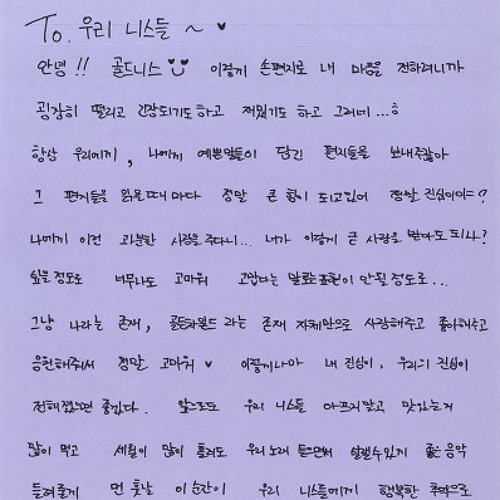 To. 우리 니스들 ~ ♥
안녕!! 골드니스 이렇게 손편지로 내 마음을 전하려니까
굉장히 떨리고 긴장되기도 하고 재밌기도 하고 그러네...ㅎ
항상 우리에게, 나에게 예쁜말들이 담긴 편지들을 보내주잖아
그 편지들을 읽을 때 마다 정말 큰 힘이 되고있어 정말 진심이야
나에게 이런 과분한 사랑을 주다니... 내가 이렇게 큰 사랑을 받아도 되나?
싶을 정도로 너무나도 고마워 고맙다는 말로는 표현이 안될 정도로...
그냥 나라는 존재, 골든차일드 라는 존재 자체만으로 사랑해주고 좋아해주고
응원해줘서 정말 고마워 ♥ 이렇게나마 내 진심이, 우리의 진심이
전해졌으면 좋겠다. 앞으로도 우리 니스들 아프지말고 맛있는거
많이 먹고 세월이 많이 흘러도 우리 노래 들으면서 힐링할수있게 좋은 음악
들려줄게 먼 훗날 이 순간이 우리 니스들에게 행복한 추억으로